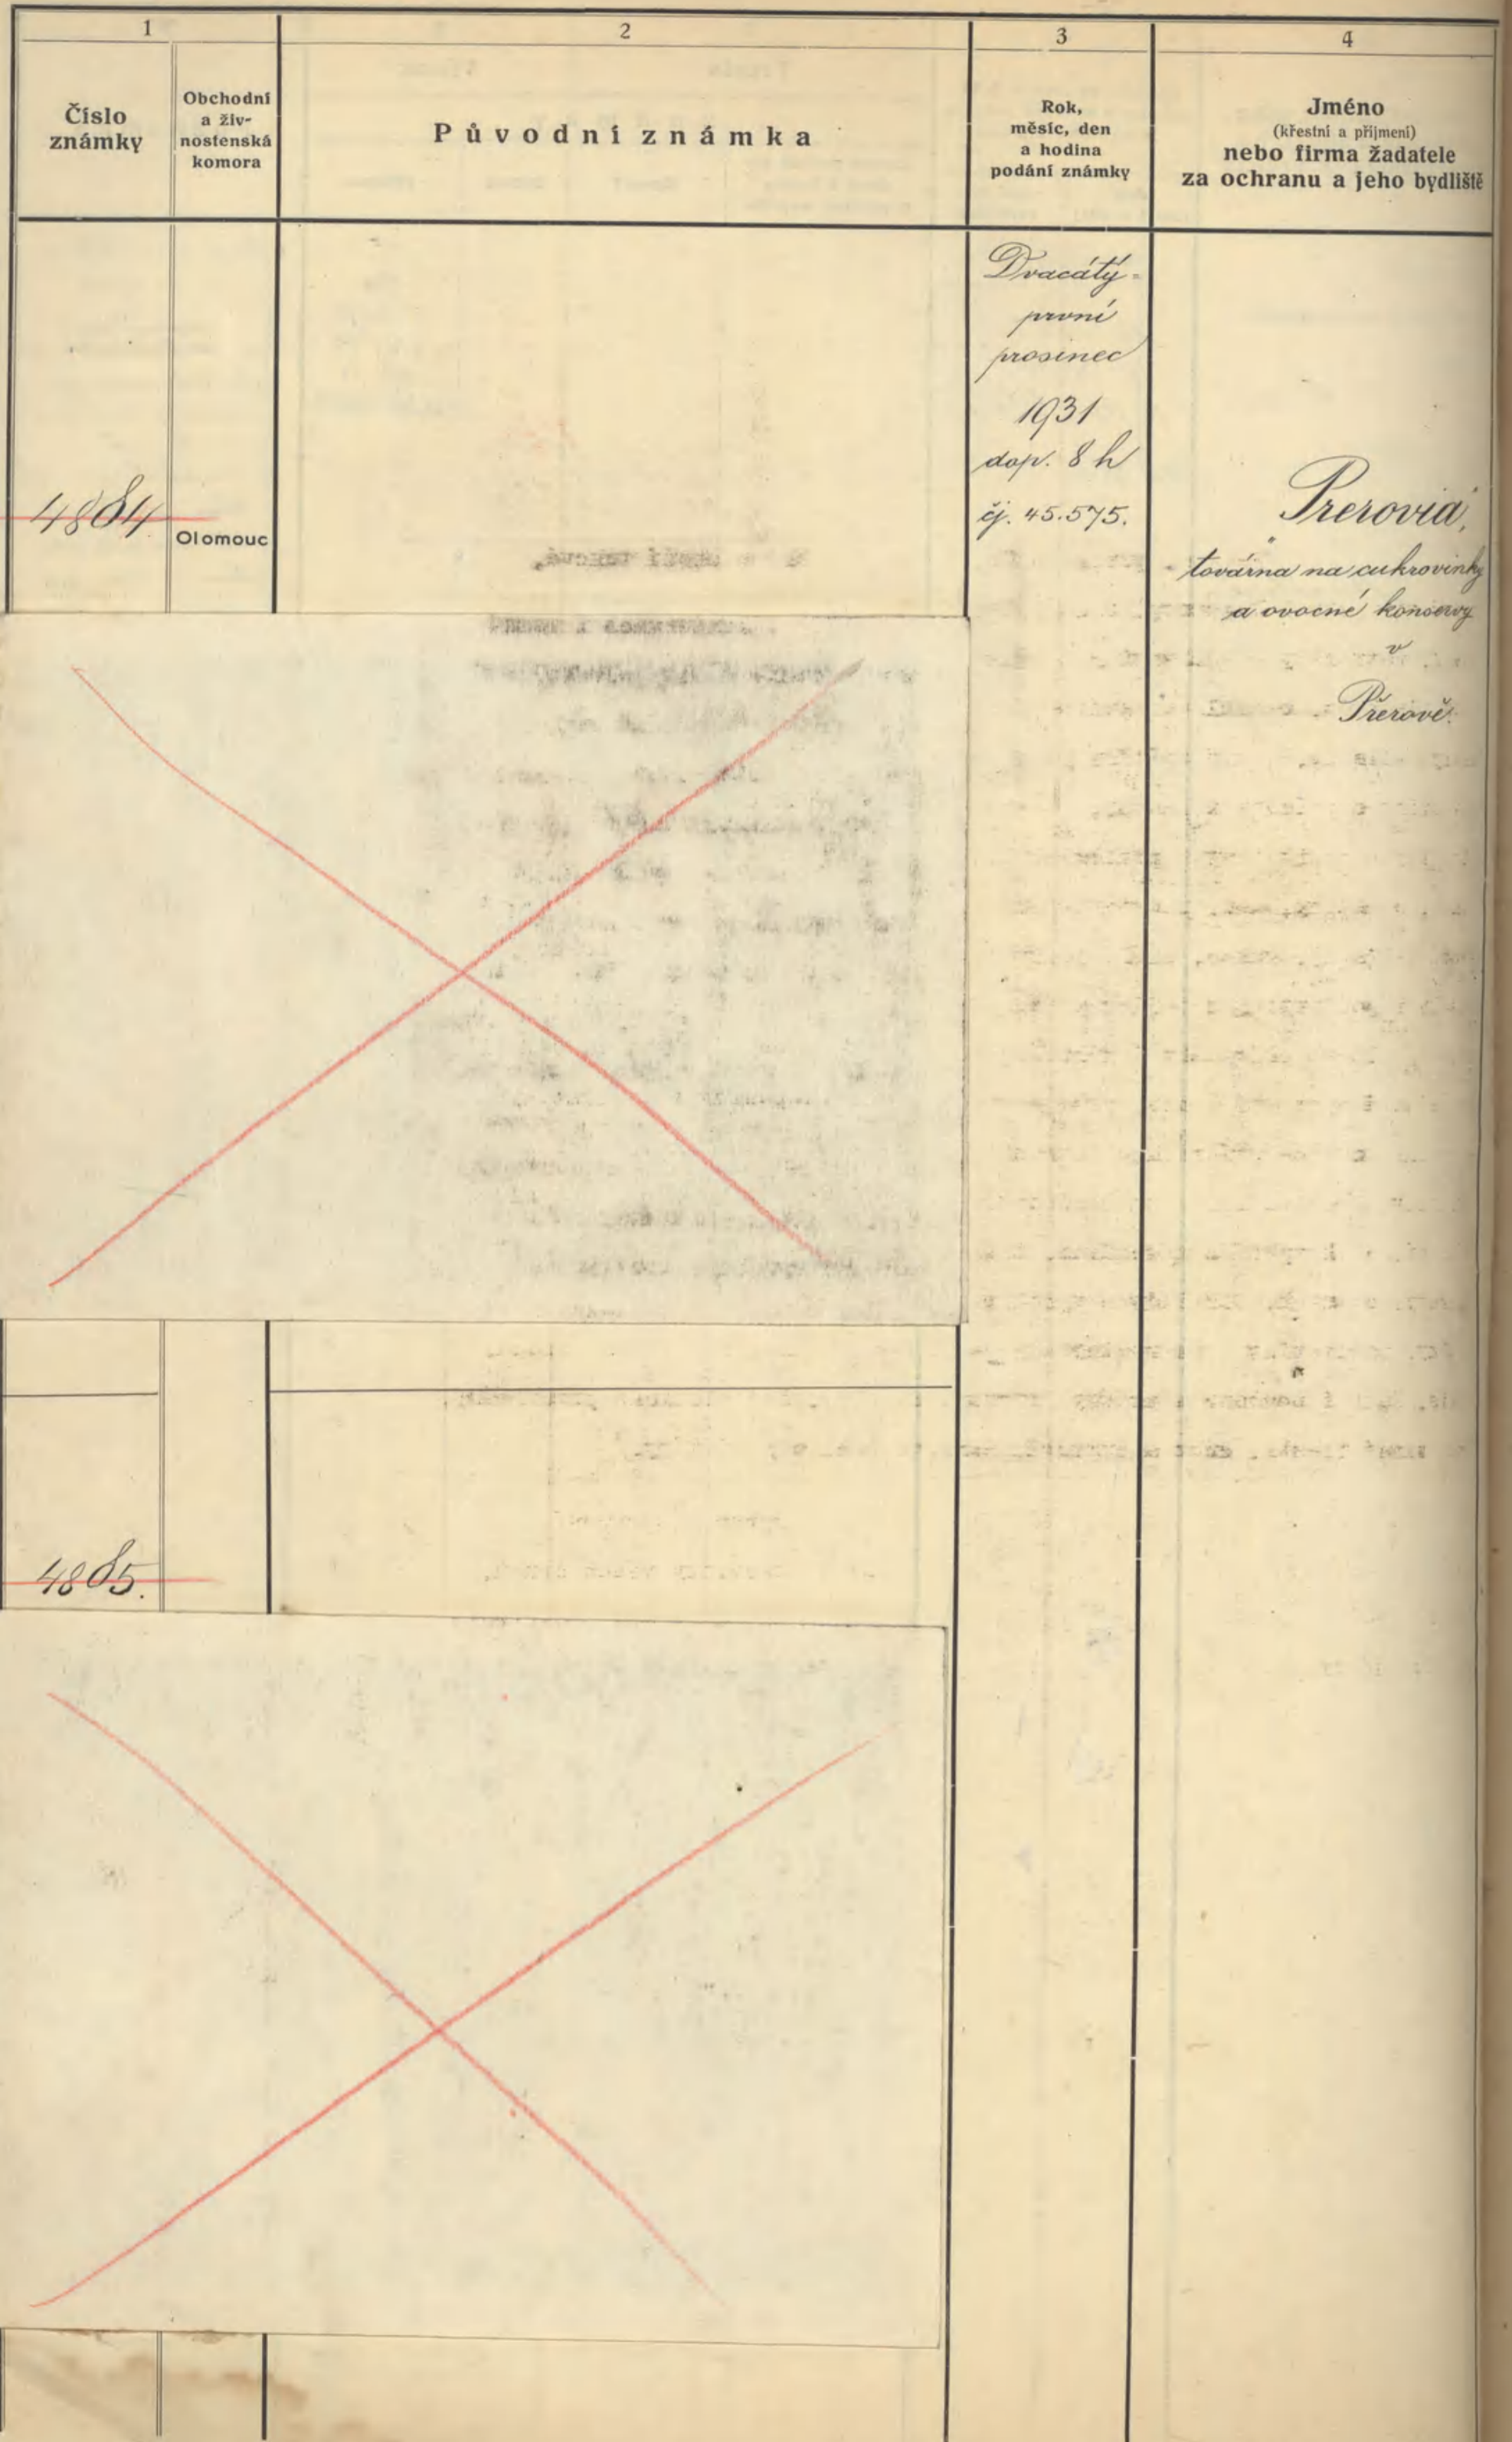 1
2
3
4
Číslo
známky
Obchodní
a živ-
nostenská
komora
Původní známka
Rok,
měsíc, den
a hodina
podání známky
Jméno
(křestní a příjmení)
nebo firma žadatele
za ochranu a jeho bydliště
4884.
Olomouc
Dvacátý-
první
prosinec
1931
dop. 8 h
čj. 45.575.
"Prerovia",
továrna na cukrovinky
a ovocné konservy
v
Přerově.
4885.